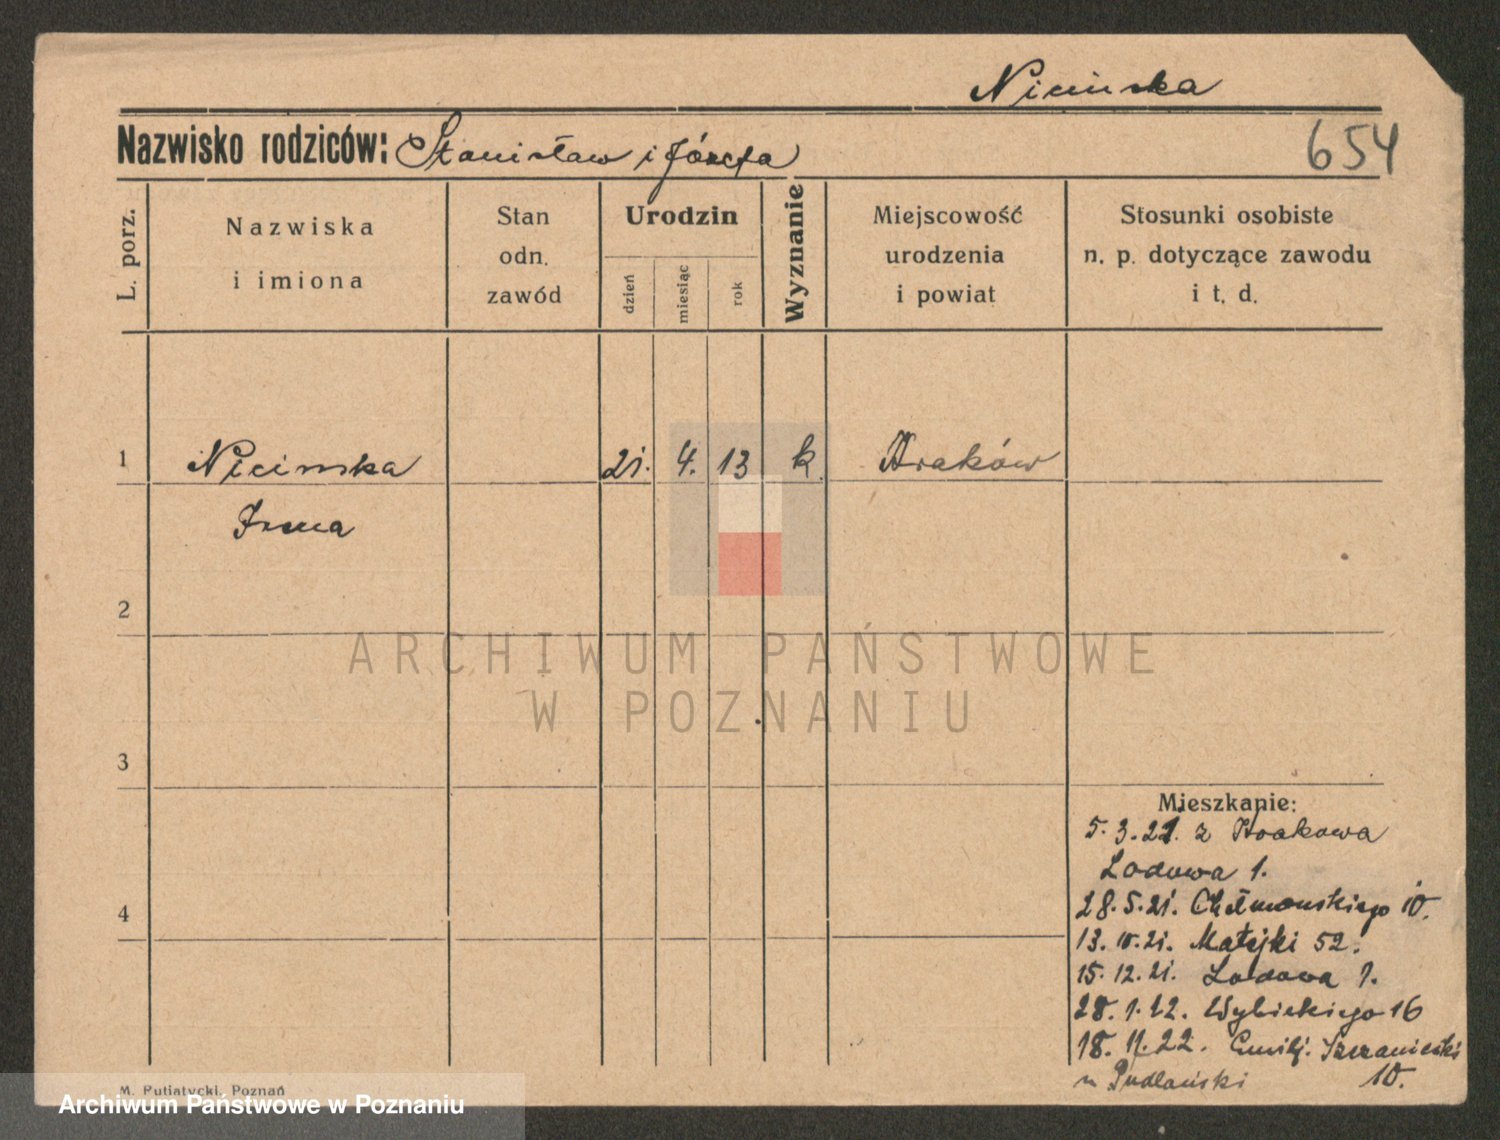 Nicińska
Nazwisko rodziców: Stanisław i Józefa
654
L. porz.
Nazwiska
i imiona
Stan
odn.
zawód
Urodzin
dzień
miesiąc
rok
Wyznanie
Miejscowość
urodzenia
i powiat
Stosunki osobiste
n. p. dotyczące zawodu
i t. d.
1 Nicinska 21. 4. 13 k Kraków
Irena
2
ARCHIWUM PAŃSTWOWE
W POZNANIU
3
Mieszkanie:
5.3.21. z Krakowa
Lodowa 1.
4
28.5.21. Chełmońskiego 10.
13.10.21. Matejki 52.
15.12.21. Lodowa 1.
28.1.22. Wybickiego 16
18.11.22. Emilj. Szczanieckiej
10.
M. Putiatycki, Poznań
Archiwum Państwowe w Poznaniu